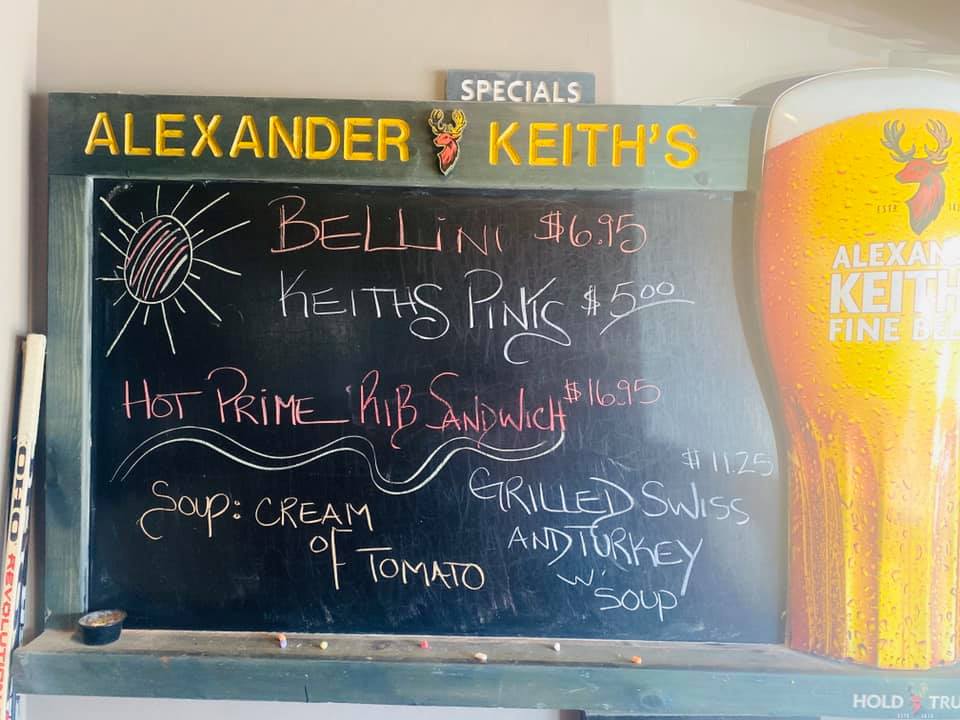 SPECIALS
ALEXANDER KEITH'S
BELLiNI $6.95
KEITHS PINTS $5.00
HOT PRIME RIB SANDWICH $16.95
$11.25
GRILLED SWISS
AND TURKEY
w/ SOUP
SOUP: CREAM
OF TOMATO
ESTD
ALEXAN
KEITH
FINE BE
HOLD TRU
OHO REVOLUTION